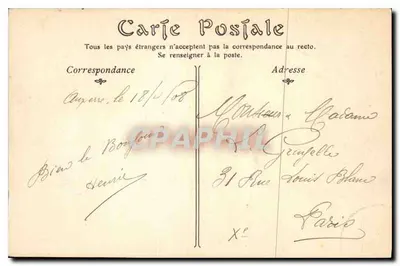 Carte Postale
Tous les pays étrangers n'acceptent pas la correspondance au recto.
Se renseigner à la poste.
Correspondance
Adresse
le 18/ /08
Bien le Bonjour
Henri
Monsieur & Madame
31 Rue Louis Blanc
Paris
Xe
CPAPHIL